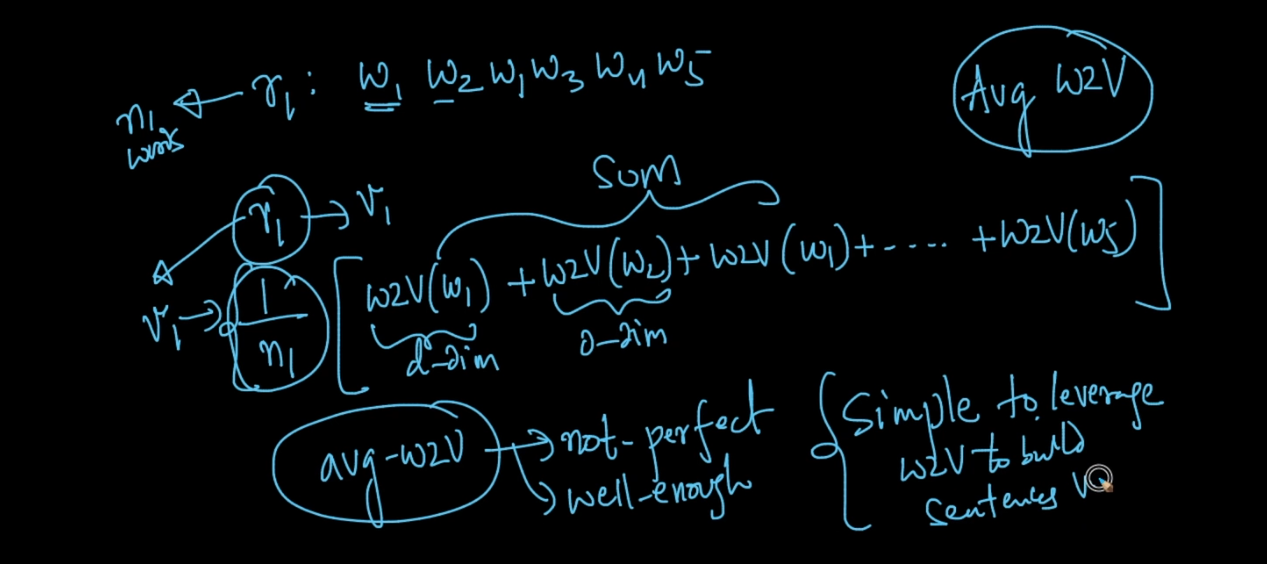 r₁ : w₁ w₂ w₁ w₃ w₄ w₅
n₁
words
Avg W2V
Sum
r₁ → v₁
v₁ → 1/n₁ [ w2V(w₁) + w2V(w₂) + w2V(w₁) + ---- + w2V(w₅) ]
d-dim d-dim
avg-w2V → not-perfect
→ well-enough
{ Simple to leverage
w2V to build
Sentences